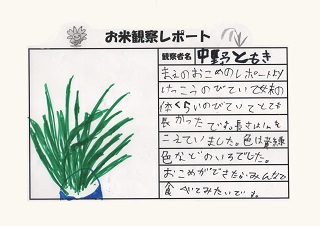 お米観察レポート
観察者名 中野ともき
まえのおこめのレポートより
けっこうのびていて
体くらいのびていてとても
長かったです。長さは1mを
こえていました。色は黄緑
色などのいろでした。
おこめができたらみんなで
食べてみたいです。